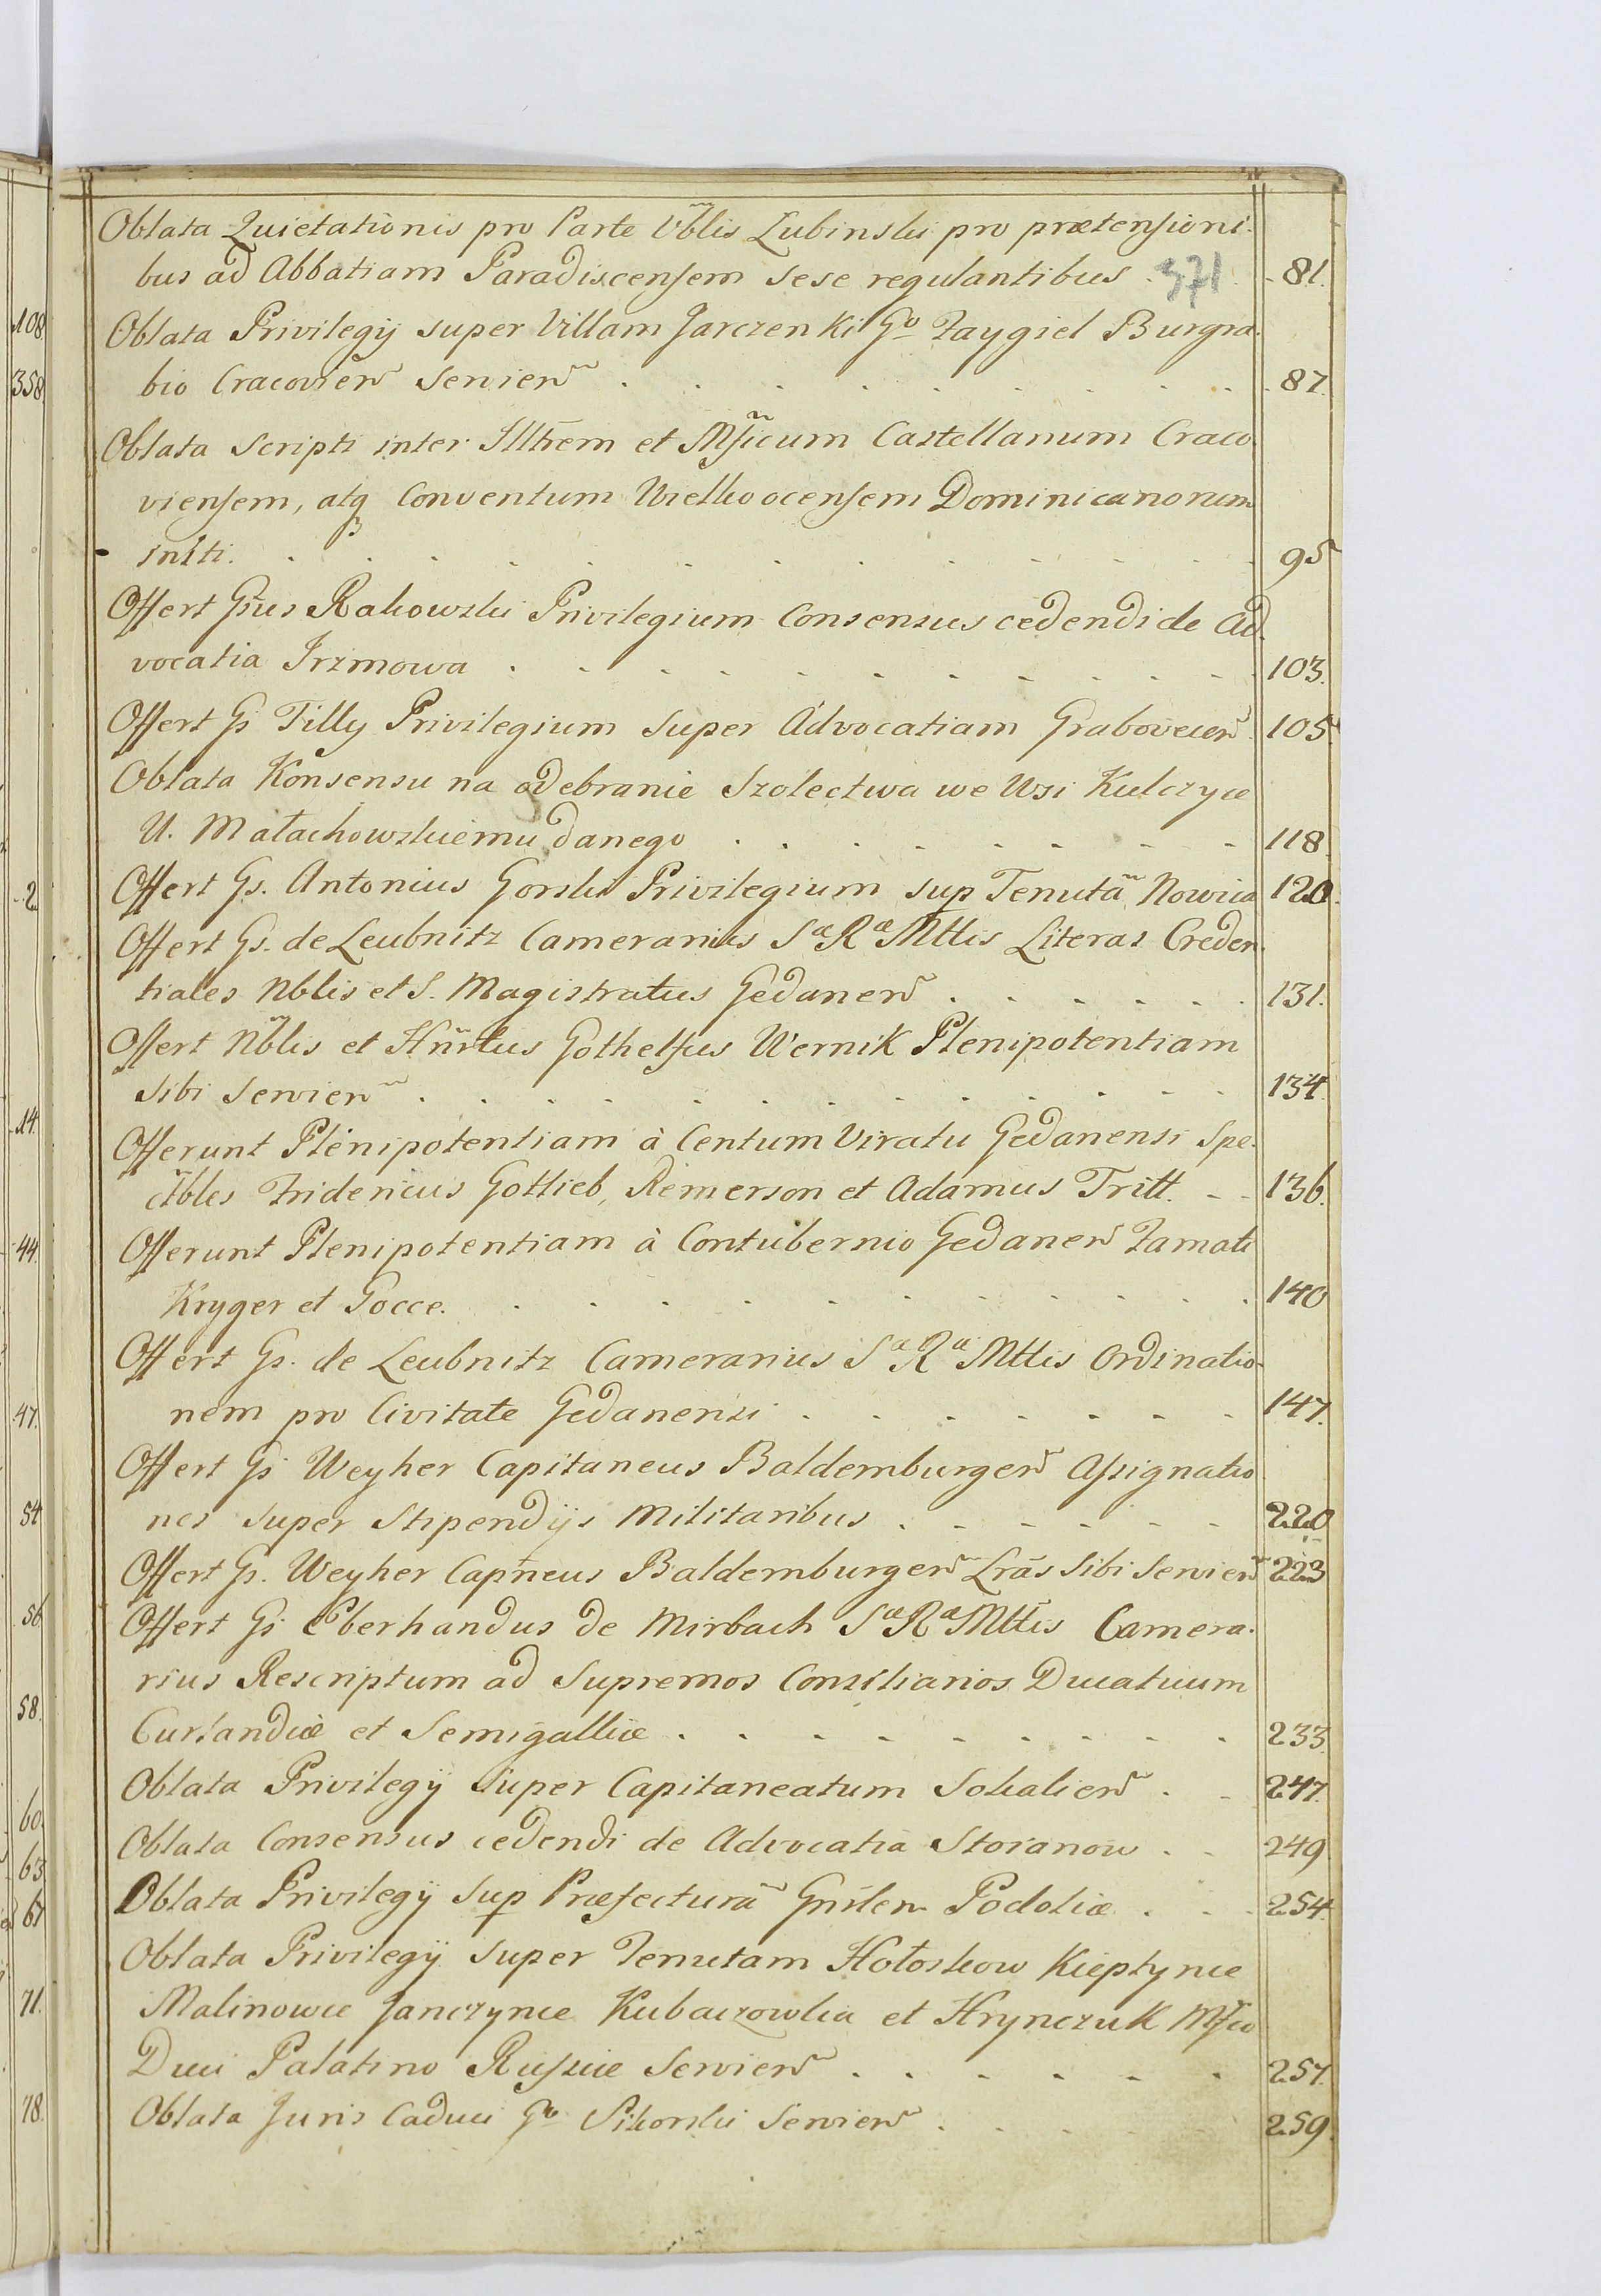 Oblata Quietationis pro Parte Vblis Lubinski pro prætensioni-
bus ad Abbatiam Paradiscensem sese regulantibus . 371 - 81.
Oblata Privilegij super Villam Jarczenki Go Zaygiel Burgra-
bio Cracovien Servien . . . 87.
Oblata Scripti inter Illtrem et Mficum Castellanum Craco
viensem, atq Conventum Dominicanorum
initi. . . . 95
Offert Gsus Rakowski Privilegium Consensus cedendi de Ad-
vocatia Irzmowa . . . 103.
Offert Gs Tilly Privilegium super Advocatiam Grabovecen 105.
Oblata Konsensu na odebranie Szolectwa we Wsi Kulczyce
U. Małachowskiemu danego . . . 118
Offert Gs. Antonius Gorski Privilegium sup Tenutã Nowica 120.
Offert Gs. de Leubnitz Camerarius Sæ Ræ Mttis Literas Creden-
tiales Nblis et S. Magistratus Gedanen . . . 131.
Offert Nblis et Hnrtus Gothelfus Wernik Plenipotentiam
Sibi Servien . . . 134.
Offerunt Plenipotentiam à Centum Viratu Gedanensi Spe-
ctbles Fridericus Gottlieb, Remerson et Adamus Tritt. - - 136.
Offerunt Plenipotentiam à Contubernio Gedanen Famati
Kryger et Gocce. . . . 140
Offert Gs. de Leubnitz Camerarius Sæ Ræ Mttis Ordinatio-
nem pro Civitate Gedanensi . . . 147.
Offert Gs Weyher Capitaneus Baldemburgen Assignatio
nes super Stipendijs Militaribus . . . 220
Offert Gs. Weyher Capneus Baldemburgen Lrãs Sibi Servien 223
Offert Gs Eberhandus de Mirbach Sæ Ræ Mttis Camera-
rius Rescriptum ad Supremos Consiliarios Ducatuum
Curlandiæ et Semigalliæ . . . 233.
Oblata Privilegij super Capitaneatum Sokalien . . 247.
Oblata Consensus cedendi de Advocatia Stoianow . . 249.
Oblata Privilegij Sup Præfecturã Gnrlem Podoliæ . . . 254.
Oblata Privilegij super Tenutam Hołoskow Kieptynce
Malinowce Janczynce Kubaczowka et Hrynczuk Mfco
Duci Palatino Russiæ Servien . . . 257.
Oblata Juris Caduci Go Sikorski Servien . . . 259.
108
358
2
14.
44.
47.
54
56
58.
60.
63
67
71.
78.